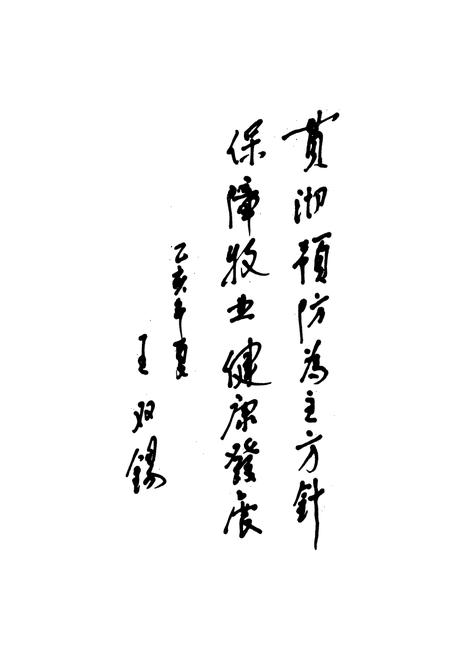 贯沏預防為主方針
保障牧业健康發展
乙亥年夏
王双錫